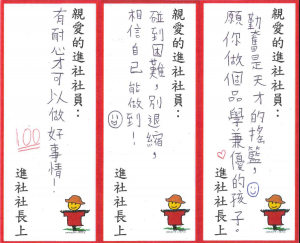 親愛的進社社員：
勤奮是天才的搖籃，
願你做個品學兼優的孩子。
進社社長上
親愛的進社社員：
碰到困難，別退縮，
相信自己能做到！
進社社長上
親愛的進社社員：
有耐心才可以做好事情！
100
進社社長上